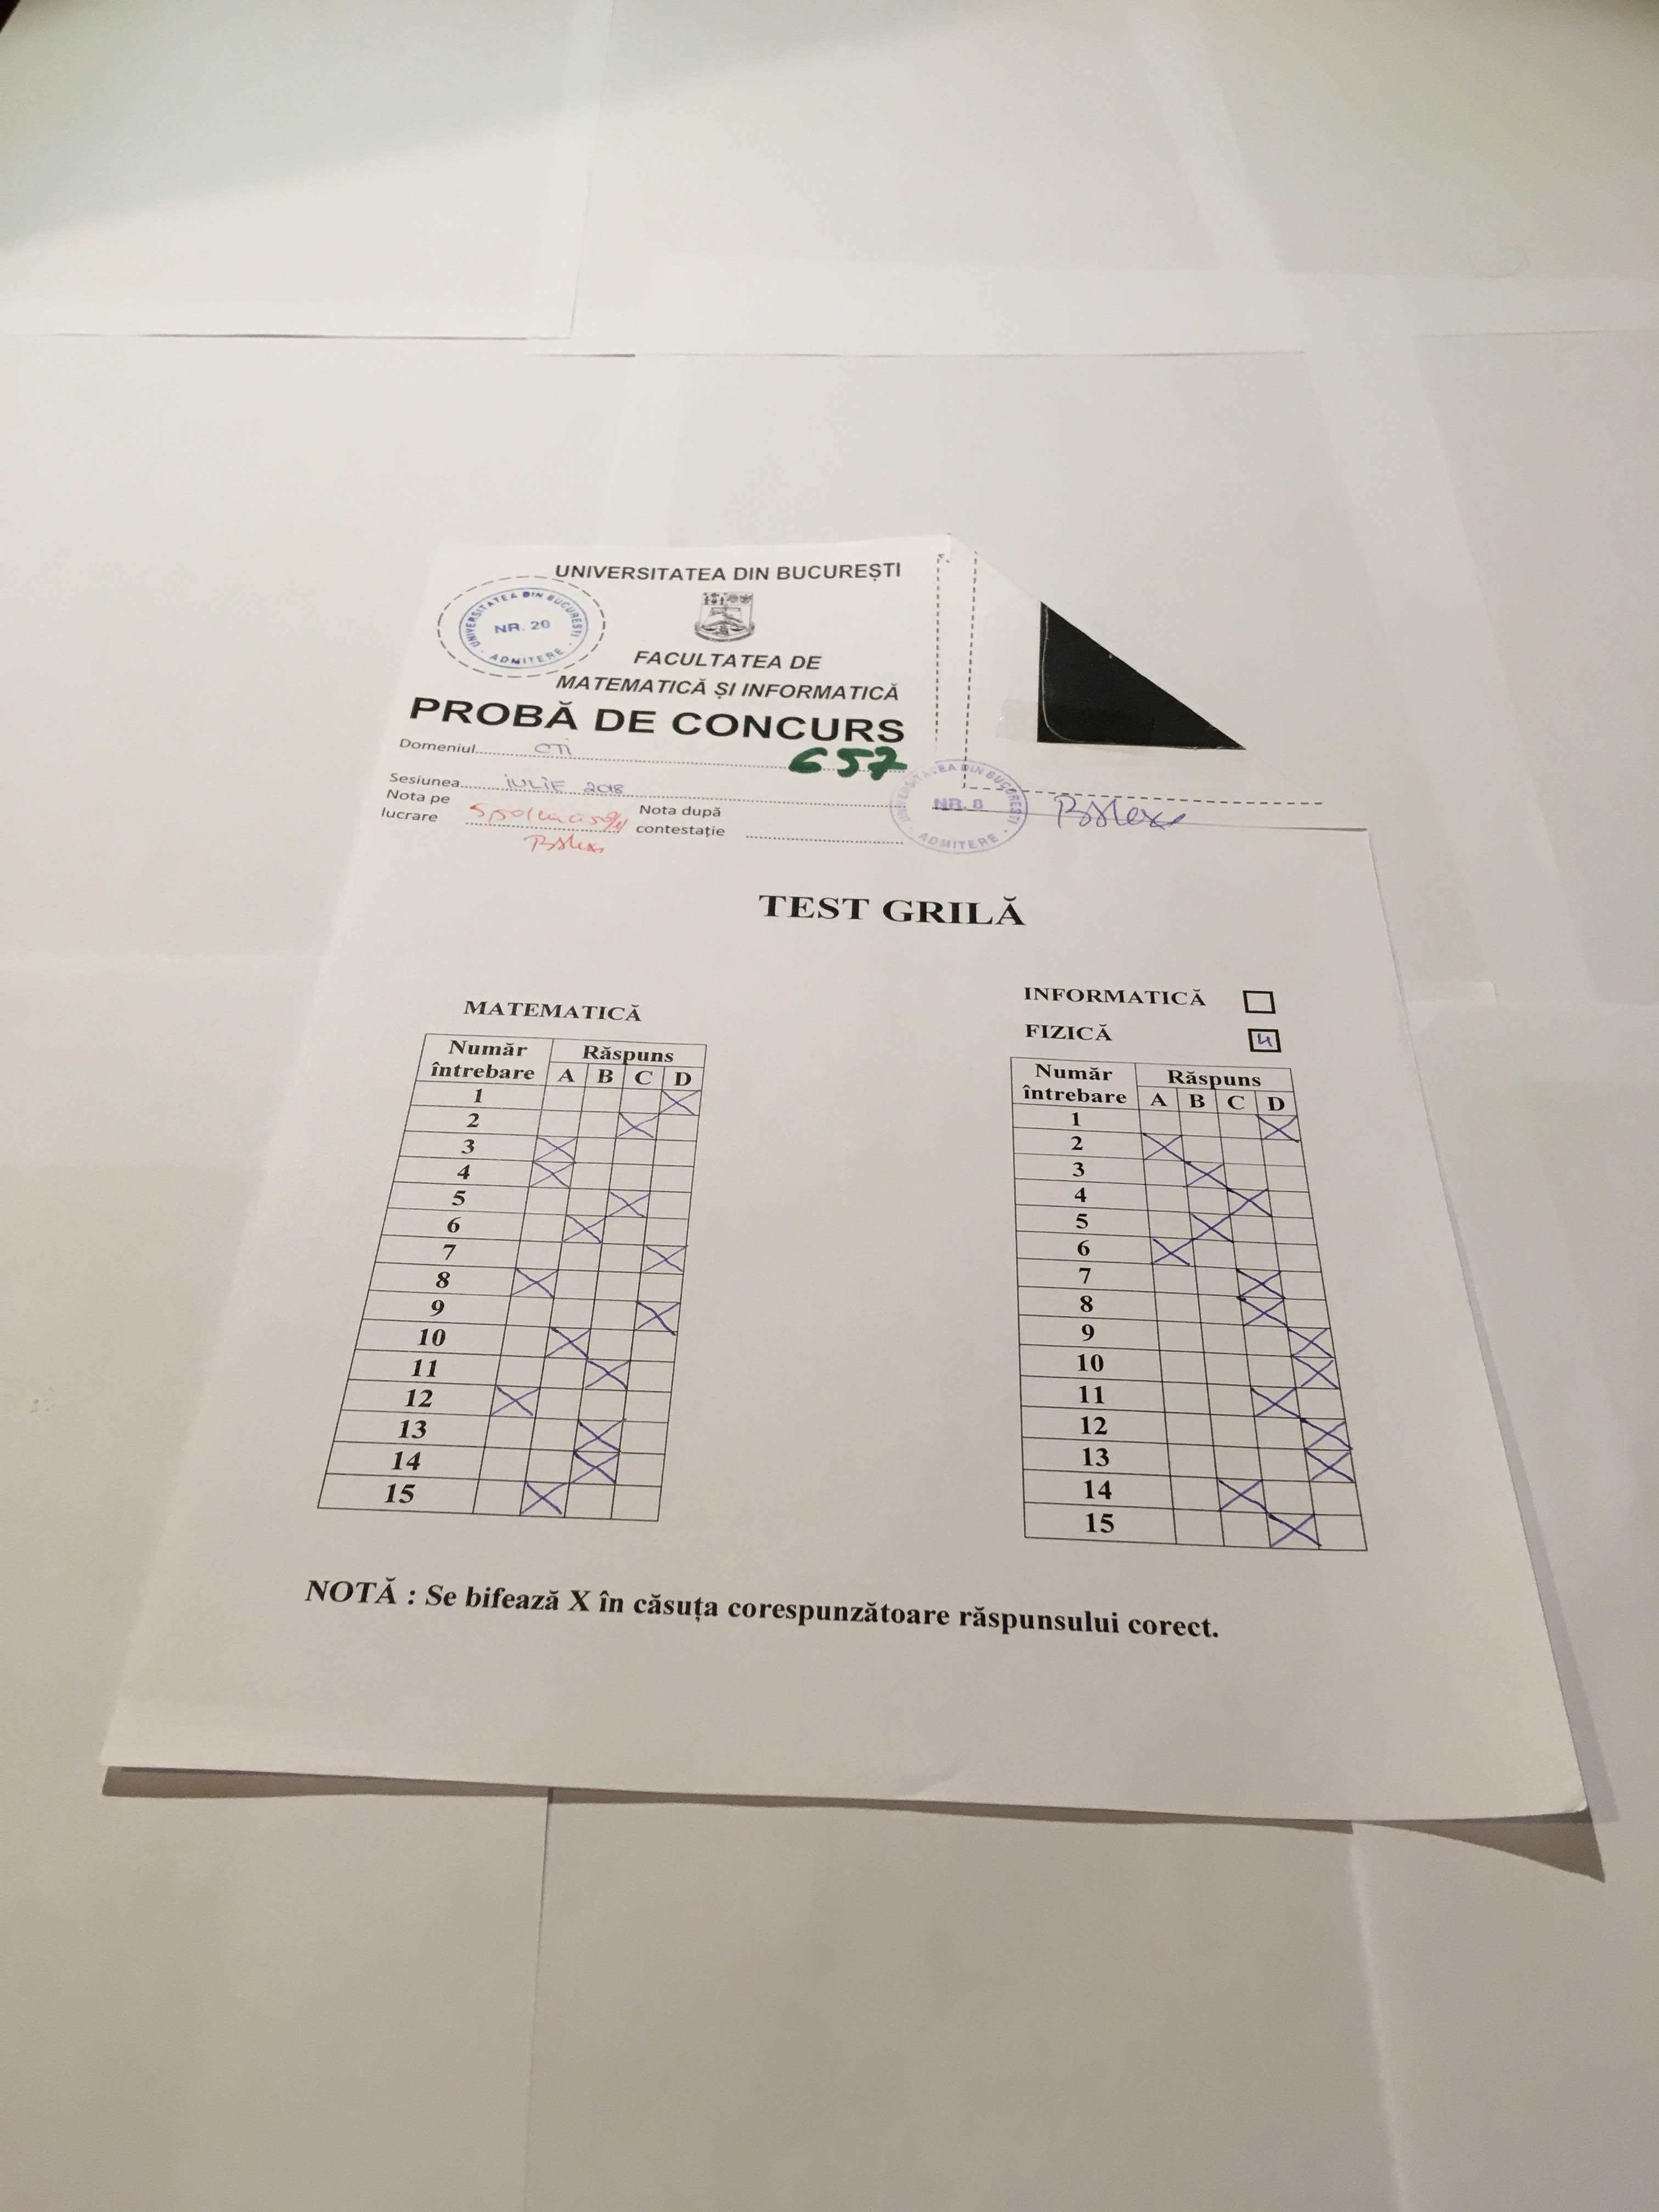 UNIVERSITATEA DIN BUCUREȘTI
UNIVERSITATEA DIN BUCURESTI
NR. 20
ADMITERE
FACULTATEA DE
MATEMATICĂ ȘI INFORMATICĂ
PROBĂ DE CONCURS
Domeniul CTi
657
Sesiunea iULiE 2018
Nota pe lucrare
Nota după contestație
UNIVERSITATEA DIN BUCURESTI
NR. 8
ADMITERE
TEST GRILĂ
MATEMATICĂ
Număr întrebare Răspuns
A B C D
1 X
2 X
3 X
4 X
5 X
6 X
7 X
8 X
9 X
10 X
11 X
12 X
13 X
14 X
15 X
INFORMATICĂ
FIZICĂ 4
Număr întrebare Răspuns
A B C D
1 X
2 X
3 X
4 X
5 X
6 X
7 X
8 X
9 X
10 X
11 X
12 X
13 X
14 X
15 X
NOTĂ : Se bifează X în căsuța corespunzătoare răspunsului corect.